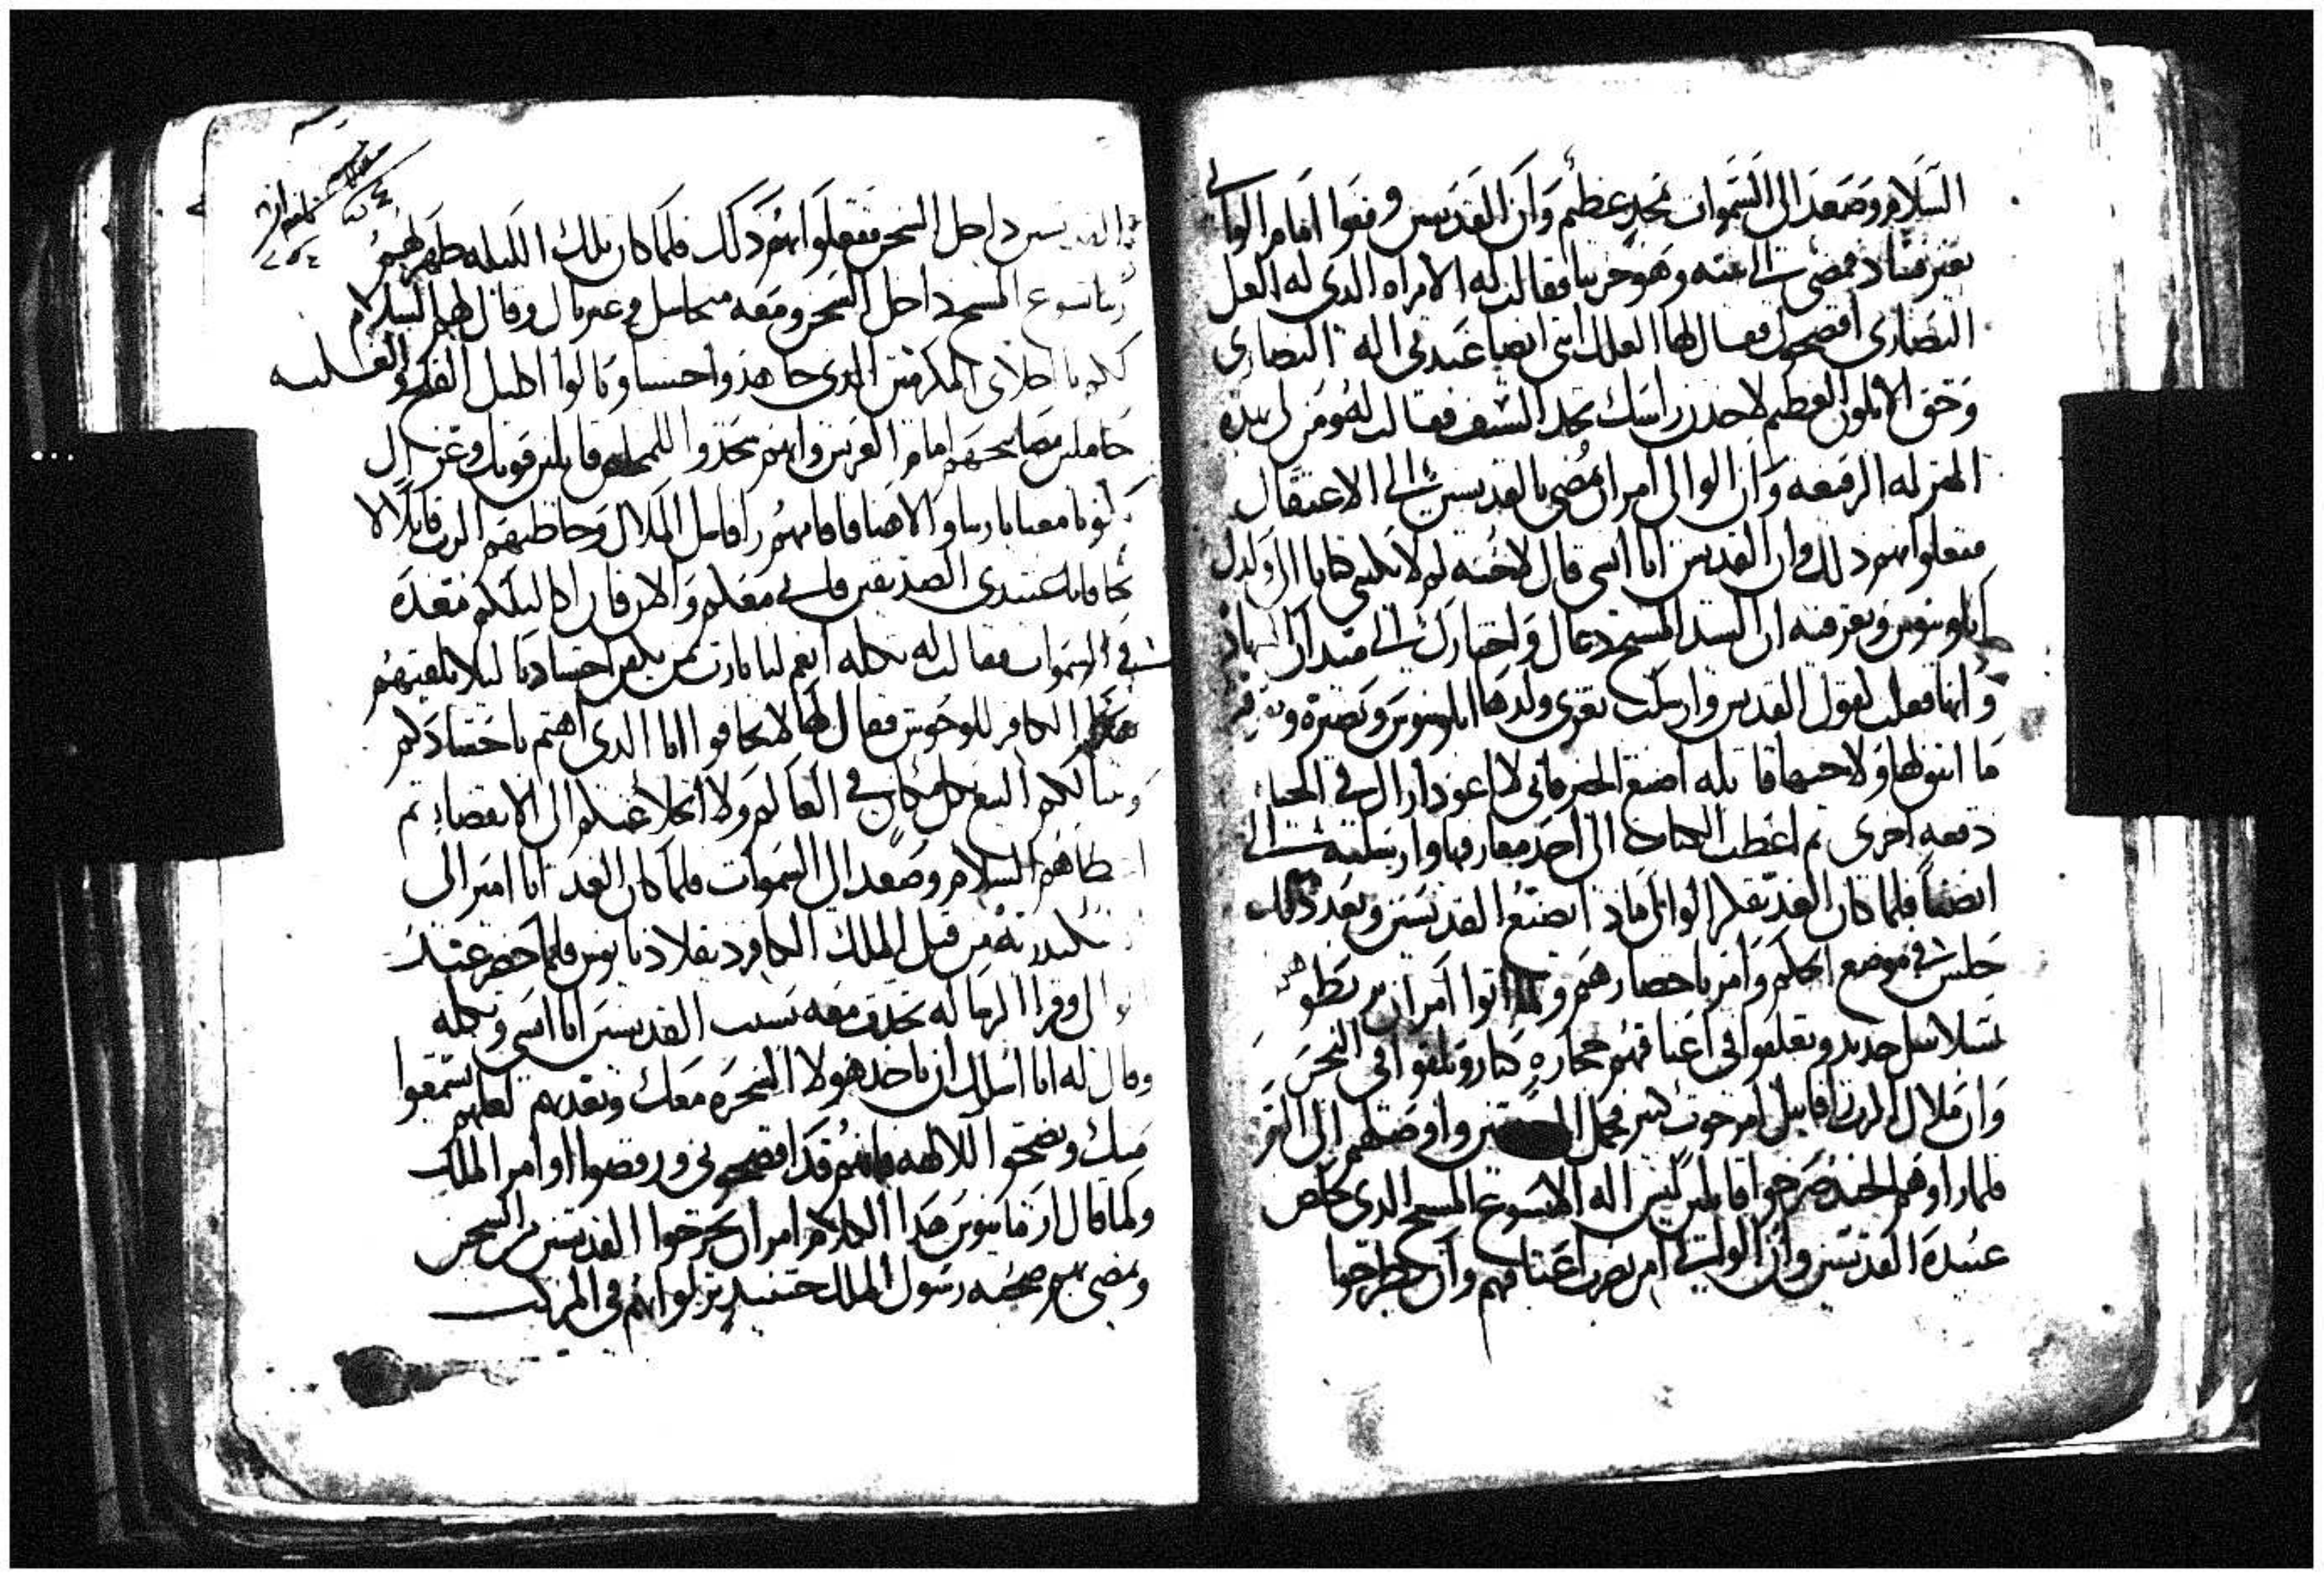 السلام وصعد الى السموات بمجد عظيم وان القديسين وقفوا امام الوالي
بغير فساد فمضى الى بيته وهو حزينا فقالت له الامراه الذى له العل
النصارى افضحوك فقال لها العلك انتي ايضا عبدتي اله النصارى
وحق الابلون العظيم لاخذن راسك بحد السيف فقالت له ومن لى بهذه
المنزله الرفيعه وان الوالى امر ان يمضى بالقديسين الى الاعتقال
ففعلوا بهم ذلك وان القديس انا قال لاخته لم لا تكتبى كتابا الى ولدك
وتعرفيه ان السيد المسيح دعاك واختارك الى ميدان الجهاد
وانها فعلت كقول القديس وارسلت تعزى ولدها وتصبره وتعرفه
ما اتفق لها ولاخيها قايله اصنع الخير فانى لا اعود اراك في الحياه
دفعه اخرى ثم اعطت الكتاب الى احد معارفها وارسلته الى
ايضا فلما كان الغد تفكر الوالى ماذا يصنع القديسين وبعد ذلك
جلس في موضع الحكم وامر باحضارهم ولما اتوا امر ان يربطوهم
بسلاسل حديد ويعلقوا في اعناقهم حجاره كبار ويلقوا في البحر
وان ملاك الرب رافاييل امر حوت كبير فحمل القديسين واوصلهم الى البر
فلما راوهم الجند صرخوا قايلين ليس اله الا يسوع المسيح الذى خلص
عبيده القديسين وان الوالي امر بضرب اعناقهم وان يطرحوا
القديسين داخل السجن ففعلوا بهم ذلك فلما كان تلك الليله ظهر لهم
ربنا يسوع المسيح داخل السجن ومعه ميخاييل وغبريال وقال لهم السلام
لكم يا احباى المكرمين الذى جاهدوا حسنا ونالوا اكليل الفرح والغلبه
حاملين مصابيحهم امام العريس وانهم سجدوا للمخلص قايلين قوتك وعزك
كون معنا يا ربنا والاهنا فاقامهم رافاييل الملاك وخاطبهم الرب قايلا لا
تخافا يا عبيدى الصديقين فاني معكم والان فان اكاليلكم معده
في السموات فقالت له تكله انعم لنا يا رب بمن يكفن اجسادنا ليلا يلقيهم
هذا الكافر للوحوش فقال لها لا تخافوا انا الذى اهتم باجسادكم
في العالم ولا اتخلا عنكم الى الانقضاء ثم
اعطاهم السلام وصعد الى السموات فلما كان الغد اتا امير الى
اسكندريه من قبل الملك الكافر دقلاديانوس فلما حضر عند
الوالى وقرا الرساله تحدث معه بسبب القديسين وتكله
وقال له انا اسلك ان تاخذ هولا السحره معك وتعذبهم لعلهم يسمعوا
منك ويضحوا للالهه فانهم قد افضحونى ورفضوا اوامر الملك
ولما قال ارمانيوس هذا الكلام امر ان يخرجوا القديسين من السجن
ويمضى بهم صحبه رسول الملك حينيذ نزلوا بهم في المركب